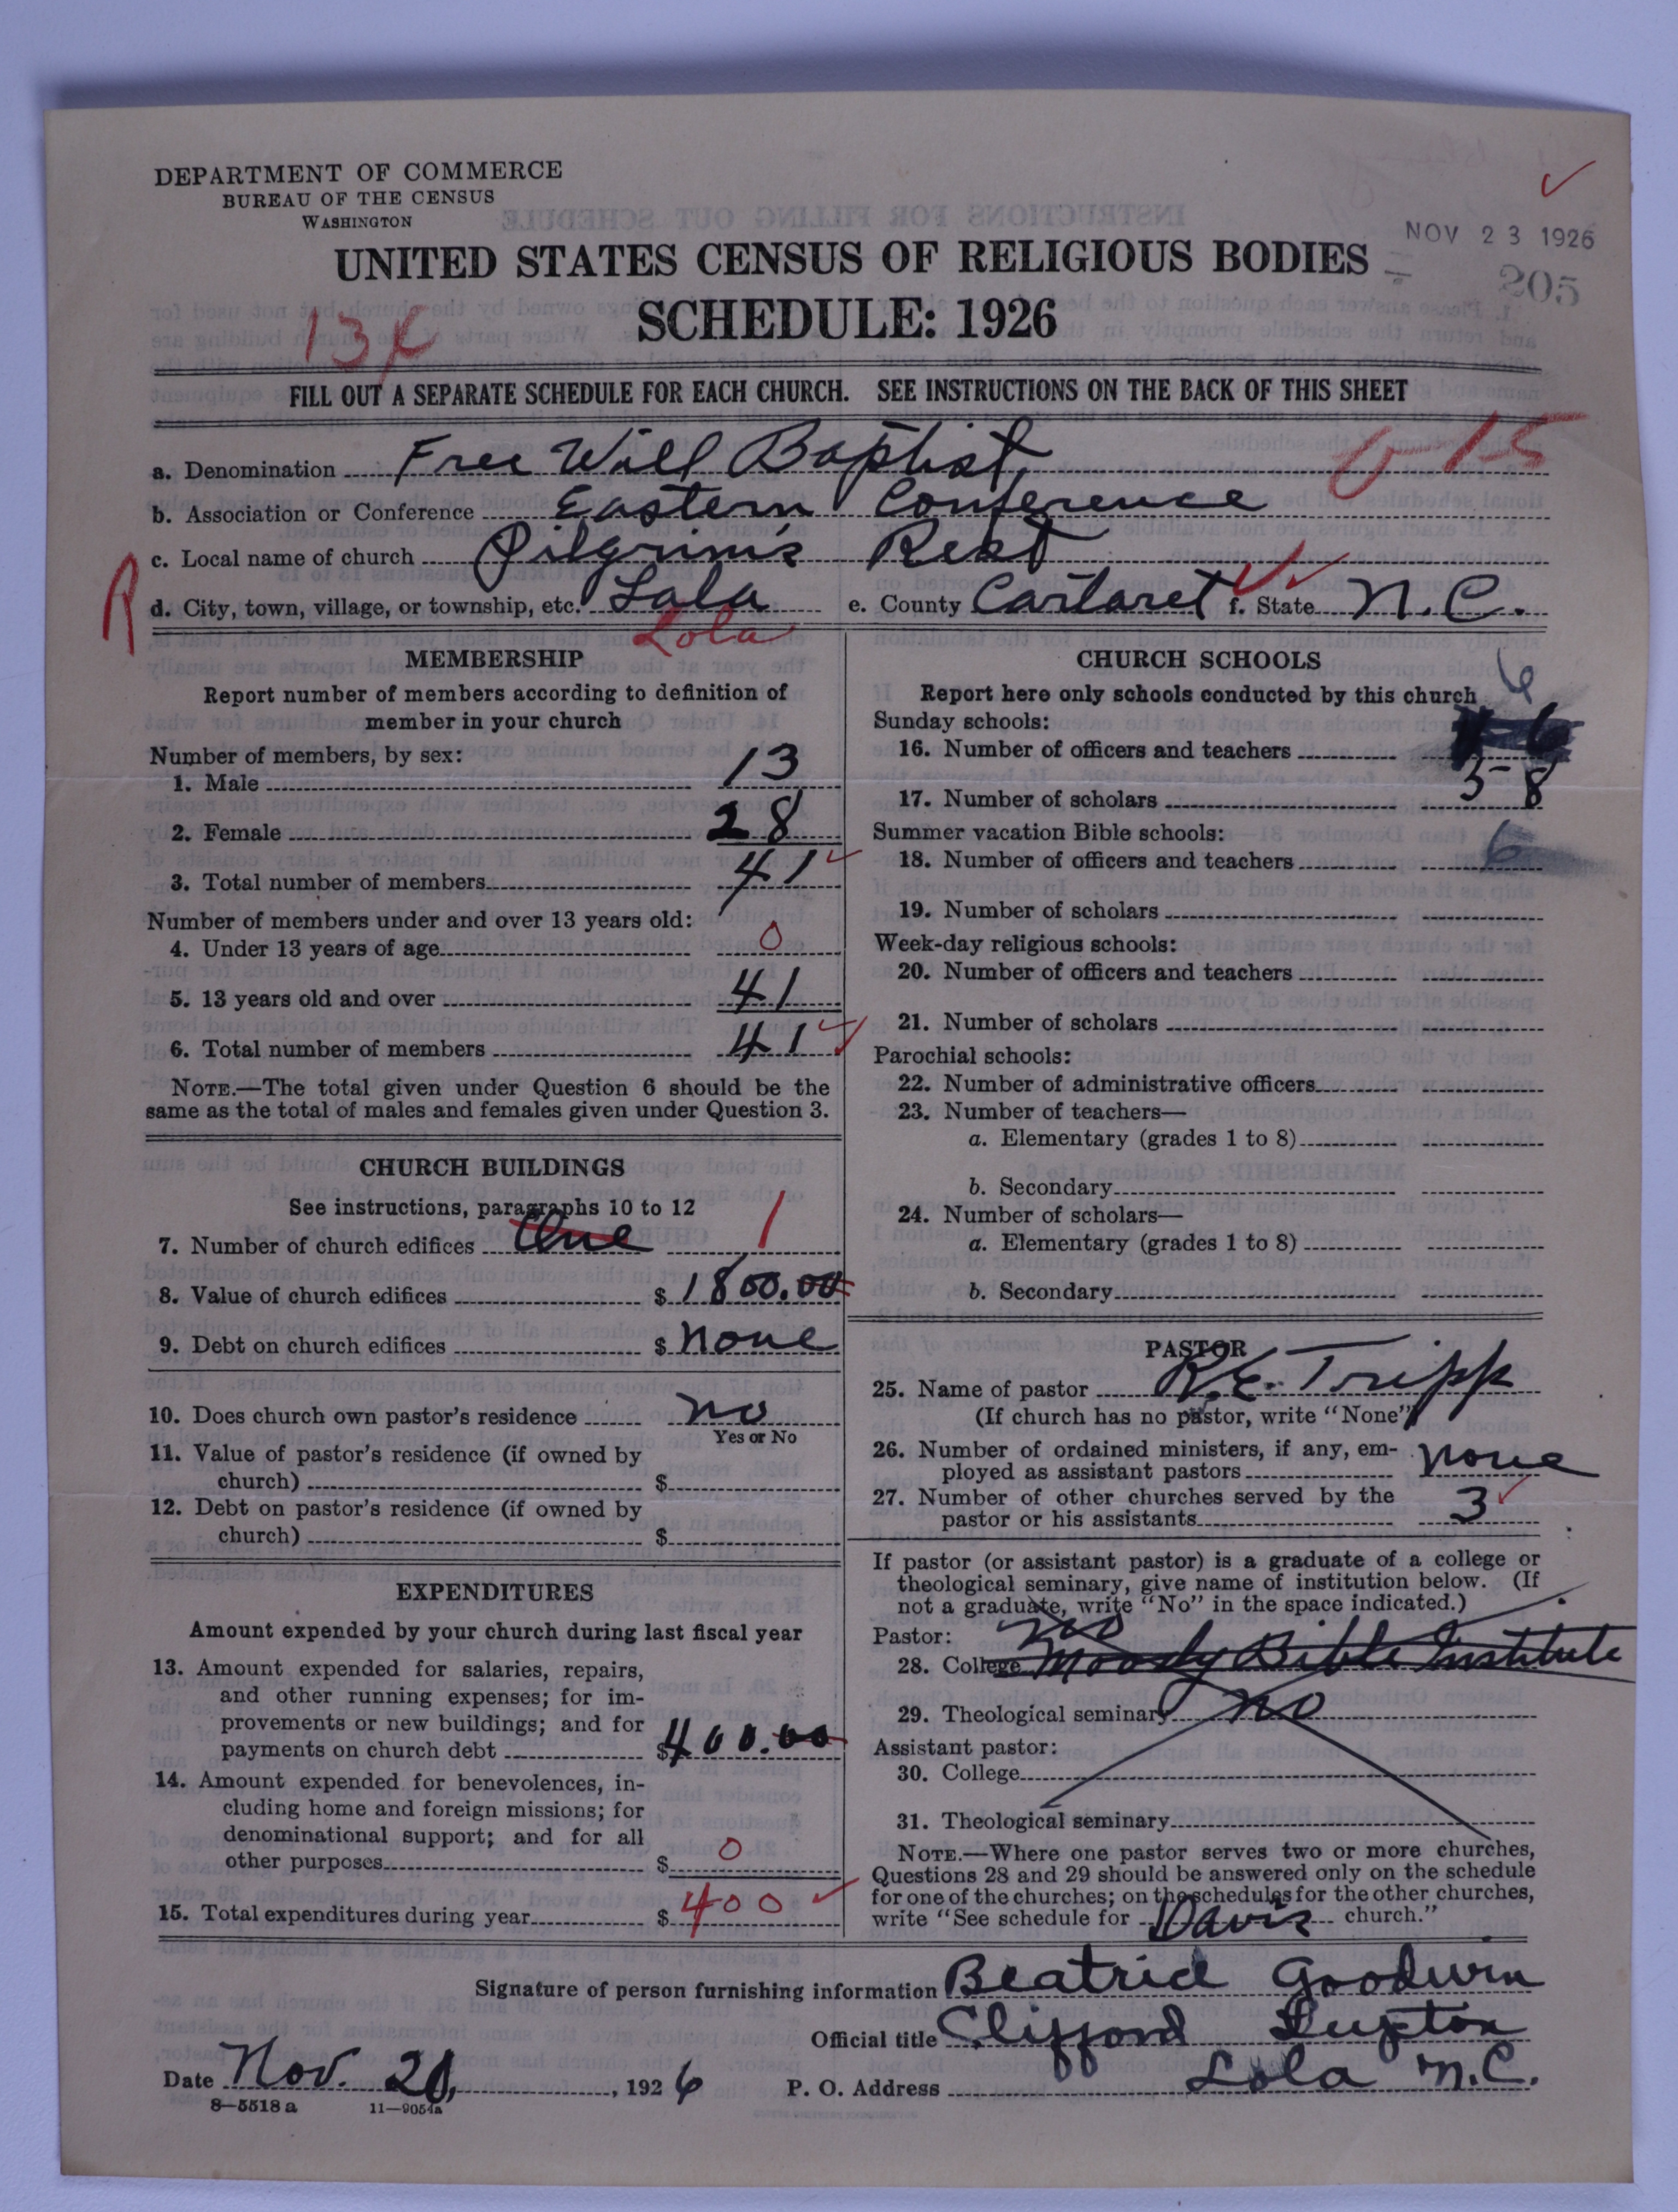 DEPARTMENT OF COMMERCE
BUREAU OF THE CENSUS
WASHINGTON
NOV 23 1926
205
UNITED STATES CENSUS OF RELIGIOUS BODIES
SCHEDULE: 1926
FILL OUT A SEPARATE SCHEDULE FOR EACH CHURCH. SEE INSTRUCTIONS ON THE BACK OF THIS SHEET
a. Denomination Free Will Baptist
b. Association or Conference Eastern Conference
c. Local name of church Pilgrim's Rest
d. City, town, village, or township, etc. Lola e. County Cartaret f. State N.C.
Lola
MEMBERSHIP
Report number of members according to definition of
member in your church
Number of members, by sex:
1. Male 13
2. Female 28
3. Total number of members 41
Number of members under and over 13 years old:
4. Under 13 years of age 0
5. 13 years old and over 41
6. Total number of members 41
NOTE.—The total given under Question 6 should be the
same as the total of males and females given under Question 3.
CHURCH BUILDINGS
See instructions, paragraphs 10 to 12
7. Number of church edifices One 1
8. Value of church edifices $ 1800.00
9. Debt on church edifices $ None
10. Does church own pastor's residence no
Yes or No
11. Value of pastor's residence (if owned by
church) $
12. Debt on pastor's residence (if owned by
church) $
EXPENDITURES
Amount expended by your church during last fiscal year
13. Amount expended for salaries, repairs,
and other running expenses; for im-
provements or new buildings; and for
payments on church debt $ 400.00
14. Amount expended for benevolences, in-
cluding home and foreign missions; for
denominational support; and for all
other purposes $ 0
15. Total expenditures during year $ 400
CHURCH SCHOOLS
Report here only schools conducted by this church
Sunday schools: 6
16. Number of officers and teachers 6
17. Number of scholars 58
Summer vacation Bible schools:
18. Number of officers and teachers 6
19. Number of scholars
Week-day religious schools:
20. Number of officers and teachers
21. Number of scholars
Parochial schools:
22. Number of administrative officers
23. Number of teachers—
a. Elementary (grades 1 to 8)
b. Secondary
24. Number of scholars—
a. Elementary (grades 1 to 8)
b. Secondary
PASTOR
25. Name of pastor R.E. Tripp
(If church has no pastor, write "None")
26. Number of ordained ministers, if any, em-
ployed as assistant pastors none
27. Number of other churches served by the
pastor or his assistants 3
If pastor (or assistant pastor) is a graduate of a college or
theological seminary, give name of institution below. (If
not a graduate, write "No" in the space indicated.)
Pastor: No
28. College Moody Bible Institute
29. Theological seminary No
Assistant pastor:
30. College
31. Theological seminary
NOTE.—Where one pastor serves two or more churches,
Questions 28 and 29 should be answered only on the schedule
for one of the churches; on the schedules for the other churches,
write "See schedule for Davis church."
Signature of person furnishing information Beatrice Goodwin
Official title Clifford Lupton
Date Nov. 20, 1926 P. O. Address Lola N.C.
8—5518 a 11—9054a